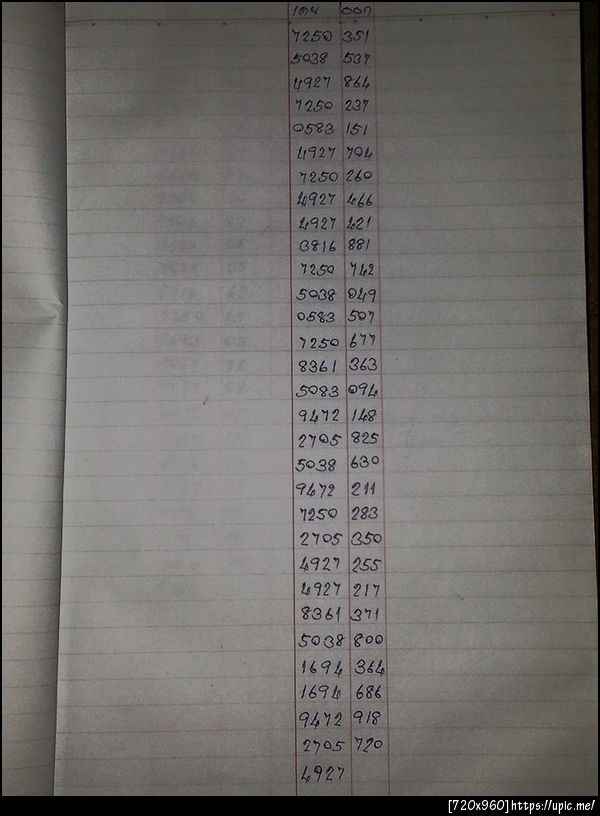 เด่น ออก
7250 351
5038 537
4927 864
7250 237
0583 151
4927 704
7250 260
4927 466
4927 421
3816 881
7250 742
5038 049
0583 507
7250 677
8361 363
5083 094
9472 148
2705 825
5038 630
9472 211
7250 283
2705 350
4927 255
4927 217
8361 371
5038 800
1694 364
1694 686
9472 918
2705 720
4927
[720x960]https://upic.me/